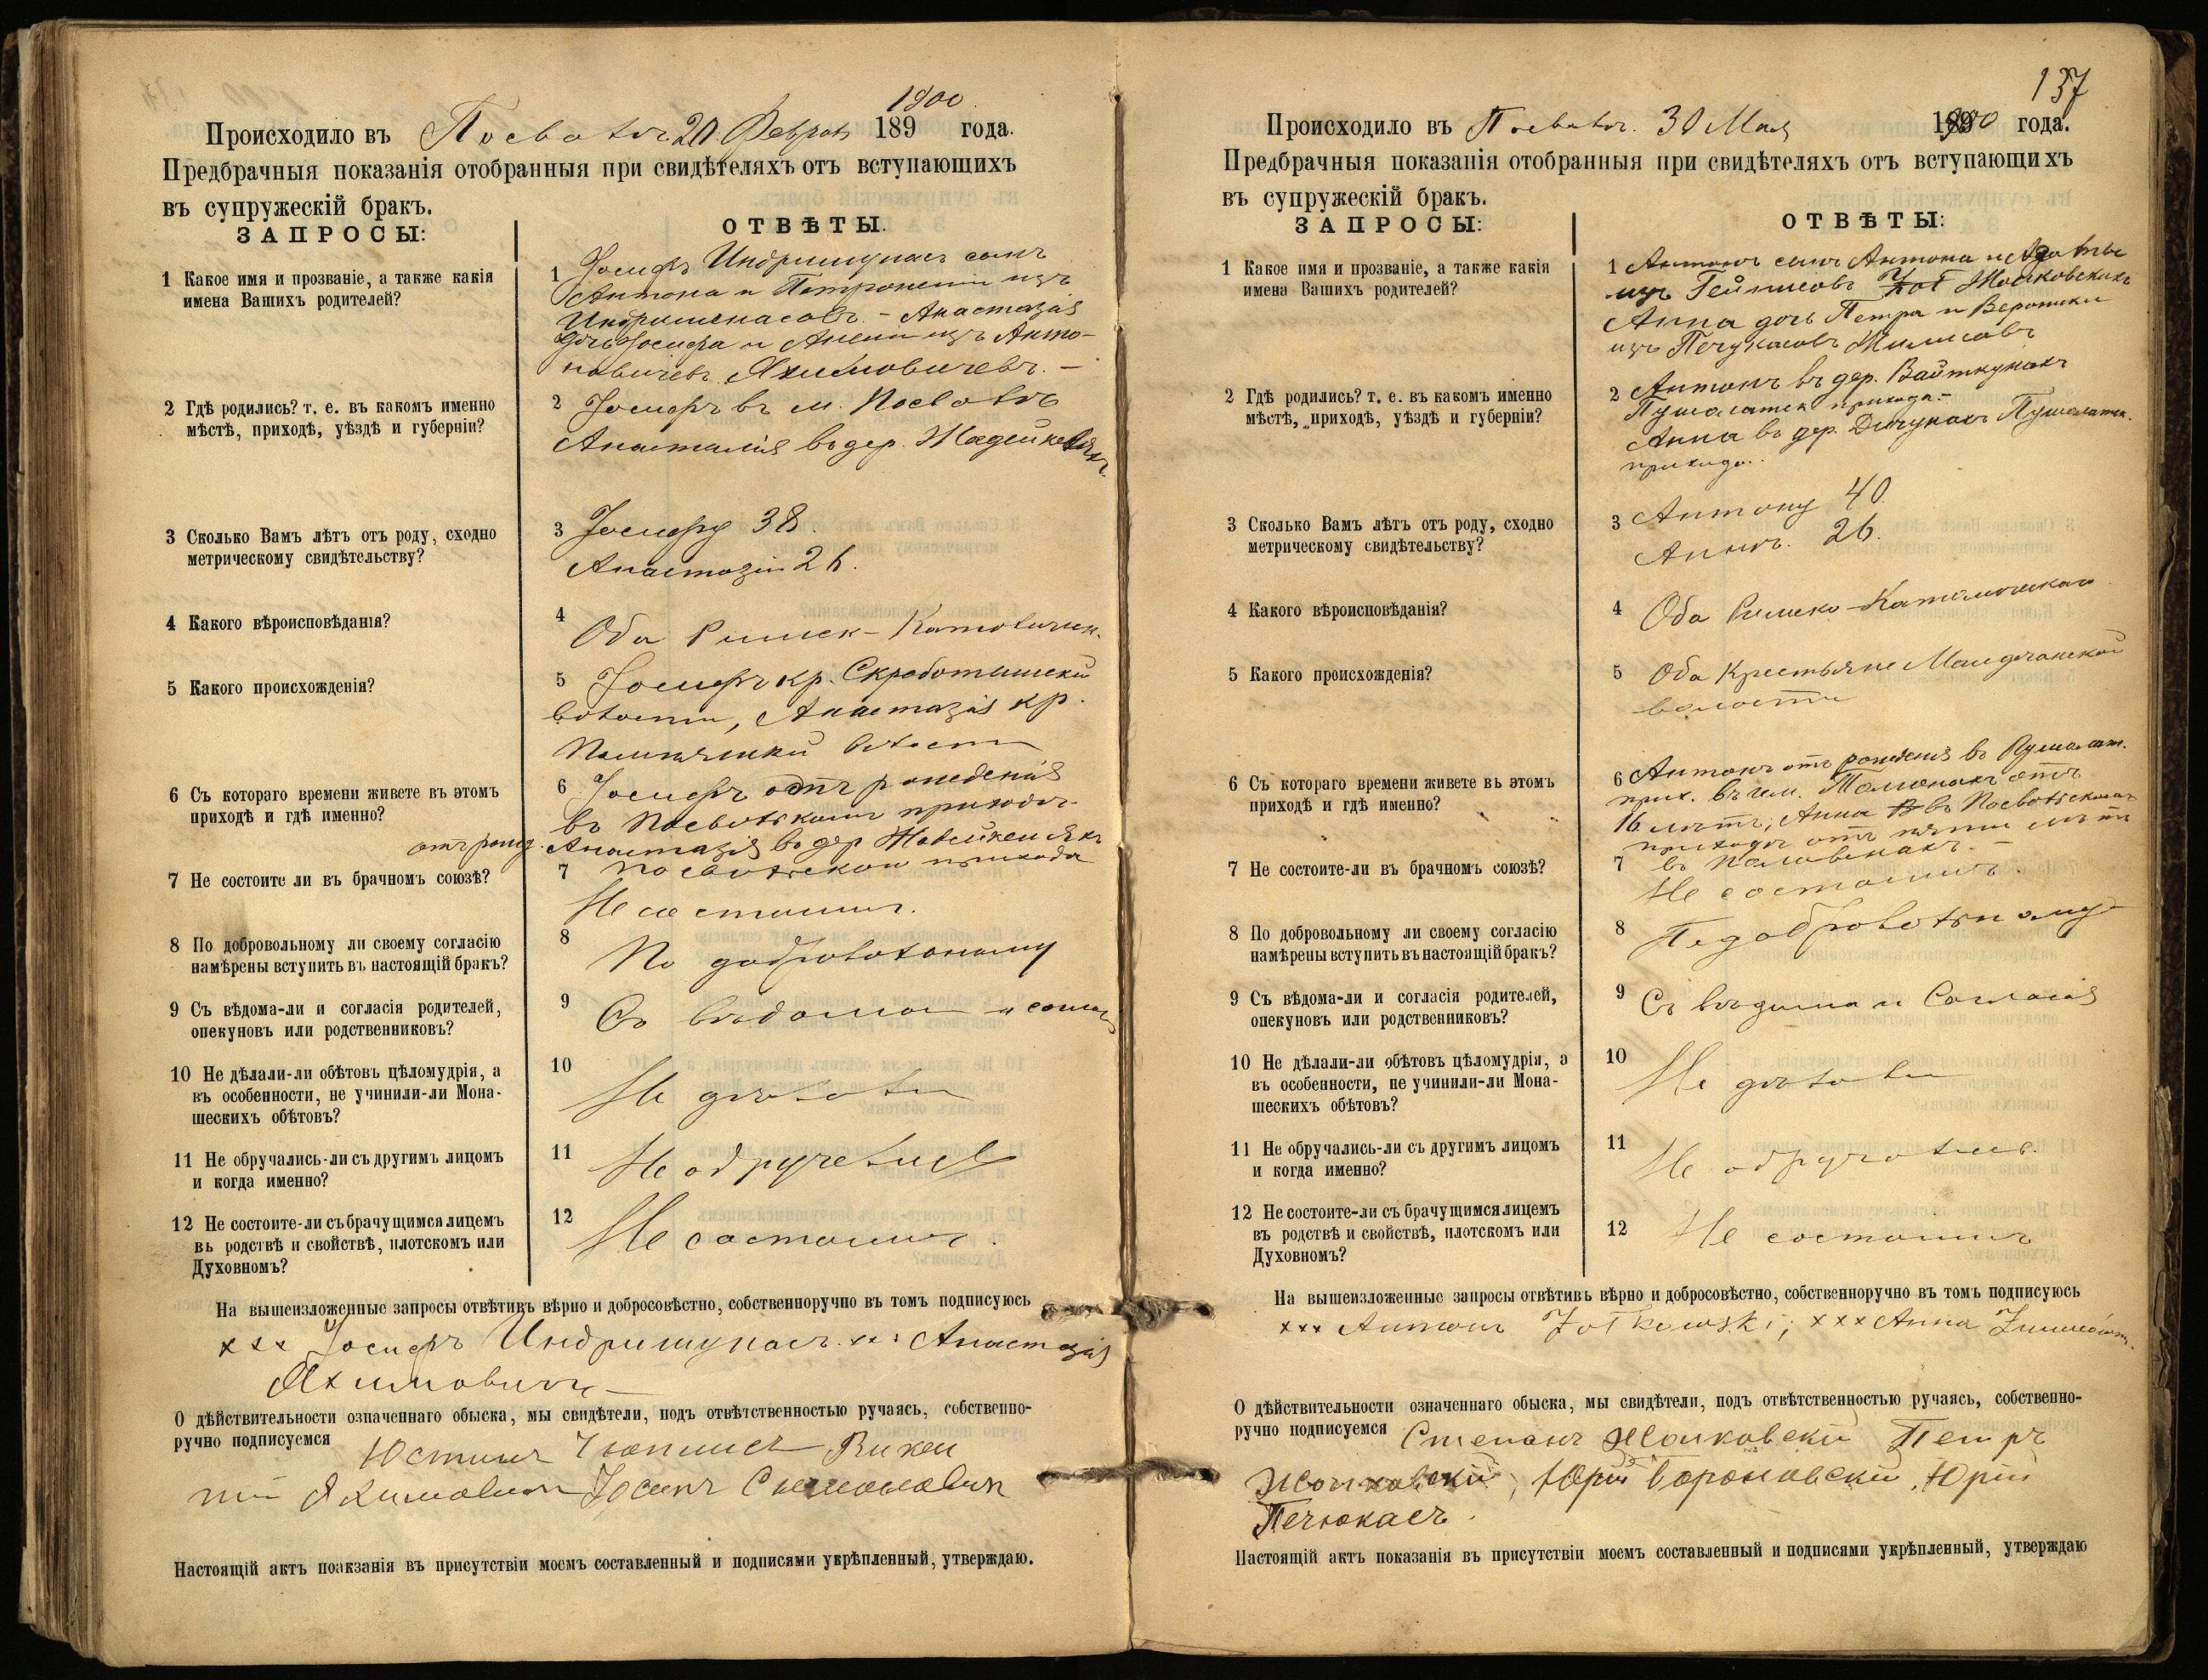 1900
Происходило въ Посволѣ 20 Февраля 189 года.
Предбрачныя показанія отобранныя при свидѣтеляхъ отъ вступающихъ
въ супружескій бракъ.
ЗАПРОСЫ:
ОТВѢТЫ.
1 Какое имя и прозваніе, а также какія
имена Вашихъ родителей?
1 Іосифъ Индришунасъ сынъ
Антона и Петронели изъ
Анастазія
дочь Іосифа и изъ Анто-
новичевъ Яхимовичевъ. –
2 Гдѣ родились? т. е. въ какомъ именно
мѣстѣ, приходѣ, уѣздѣ и губерніи?
2 Іосифъ въ м. Посволѣ
въ дер.
3 Сколько Вамъ лѣтъ отъ роду, сходно
метрическому свидѣтельству?
3 Іосифу 38.
Анастазіи 26.
4 Какого вѣроисповѣданія?
4 Оба Римск-Католическ.
5 Какого происхожденія?
5 Іосифъ кр. Скработишской
волости, Анастазія кр.
волости
6 Съ котораго времени живете въ этомъ
приходѣ и гдѣ именно?
6 Іосифъ отъ рождения
въ Посвольскомъ приходѣ
отъ рожд. Анастазія въ дер.
Посвольскаго прихода
7 Не состоите ли въ брачномъ союзѣ?
7 Не состоимъ.
8 По добровольному ли своему согласію
намѣрены вступить въ настоящій бракъ?
8 По добровольному
9 Съ вѣдома-ли и согласія родителей,
опекуновъ или родственниковъ?
9 Съ вѣдома и соглас
10 Не дѣлали-ли обѣтовъ цѣломудрія, а
въ особенности, не учинили-ли Мона-
шескихъ обѣтовъ?
10 Не дѣлали
11 Не обручались-ли съ другимъ лицомъ
и когда именно?
11 Не обручались
12 Не состоите-ли съ брачущимся лицемъ
въ родствѣ и свойствѣ, плотскомъ или
Духовномъ?
12 Не состоимъ.
На вышеизложенные запросы отвѣтивъ вѣрно и добросовѣстно, собственноручно въ томъ подписуюсь
××× Іосифъ Индришунасъ ××× Анастазія
Яхимовичъ
О дѣйствительности означеннаго обыска, мы свидѣтели, подъ отвѣтственностью ручаясь, собственно-
ручно подписуемся Юстинъ Викен
тій Якимовичъ Іосипъ Симоновичъ
Настоящій актъ поакзанія въ присутствіи моемъ составленный и подписями укрѣпленный, утверждаю.
137
Происходило въ Посволѣ. 30 Мая 1900 года.
Предбрачныя показанія отобранныя при свидѣтеляхъ отъ вступающихъ
въ супружескій бракъ.
ЗАПРОСЫ:
ОТВѢТЫ:
1 Какое имя и прозваніе, а также какія
имена Вашихъ родителей?
1 Антонъ сынъ Антона и Агаты
изъ Жолковскихъ
Анна дочь Петра и Вероники
изъ
2 Гдѣ родились? т. е. въ какомъ именно
мѣстѣ, приходѣ, уѣздѣ и губерніи?
2 Антонъ въ дер. Вайткунахъ
Пушолатск прихода –
Анна въ дер. Дичунахъ Пушолатск.
прихода.
3 Сколько Вамъ лѣтъ отъ роду, сходно
метрическому свидѣтельству?
3 Антону 40.
Аннѣ. 26.
4 Какого вѣроисповѣданія?
4 Оба Римско-Католическаго
5 Какого происхожденія?
5 Оба Крестьяне
волости
6 Съ котораго времени живете въ этомъ
приходѣ и гдѣ именно?
6 Антонъ отъ рожденія въ Пушолат.
прих. отъ
16 лѣтъ; Анна въ Посвольскомъ
приходѣ отъ пяти лѣтъ
въ
7 Не состоите-ли въ брачномъ союзѣ?
7 Не состоимъ.
8 По добровольному ли своему согласію
намѣрены вступить въ настоящій бракъ?
8 По добровольному
9 Съ вѣдома-ли и согласія родителей,
опекуновъ или родственниковъ?
9 Съ вѣдома и Согласія
10 Не дѣлали-ли обѣтовъ цѣломудрія, а
въ особенности, не учинили-ли Мона-
шескихъ обѣтовъ?
10 Не дѣлали
11 Не обручались-ли съ другимъ лицомъ
и когда именно?
11 Не обручались.
12 Не состоите-ли съ брачущимся лицемъ
въ родствѣ и свойствѣ, плотскомъ или
Духовномъ?
12 Не состоимъ
На вышеизложенные запросы отвѣтивъ вѣрно и добросовѣстно, собственноручно въ томъ подписуюсь
××× Антонъ Żołkowski; ××× Анна
О дѣйствительности означеннаго обыска, мы свидѣтели, подъ отвѣтственностью ручаясь, собственно-
ручно подписуемся Степанъ Жолковскій Петръ
Жолковскій, Юрій Бороновскій, Юрій
Печюкасъ.
Настоящій актъ показанія въ присутствіи моемъ составленный и подписями укрѣпленный, утверждаю